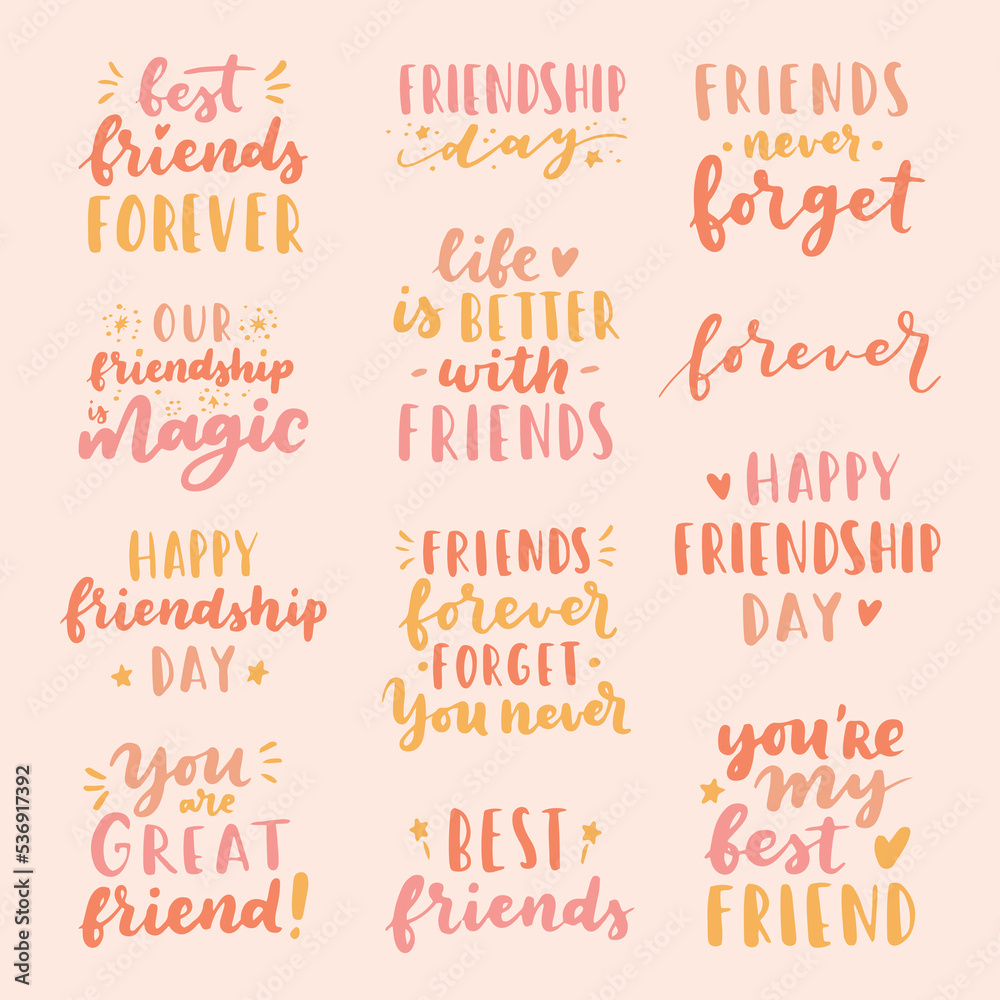 best
friends
FOREVER
OUR
friendship
is
Magic
HAPPY
friendship
DAY
You
are
GREAT
friend!
FRIENDSHIP
day
life
is BETTER
with
FRIENDS
FRIENDS
forever
FORGET
You never
BEST
friends
FRIENDS
never
forget
forever
HAPPY
FRIENDSHIP
DAY
you're
my
best
FRIEND
Adobe Stock | #536917392